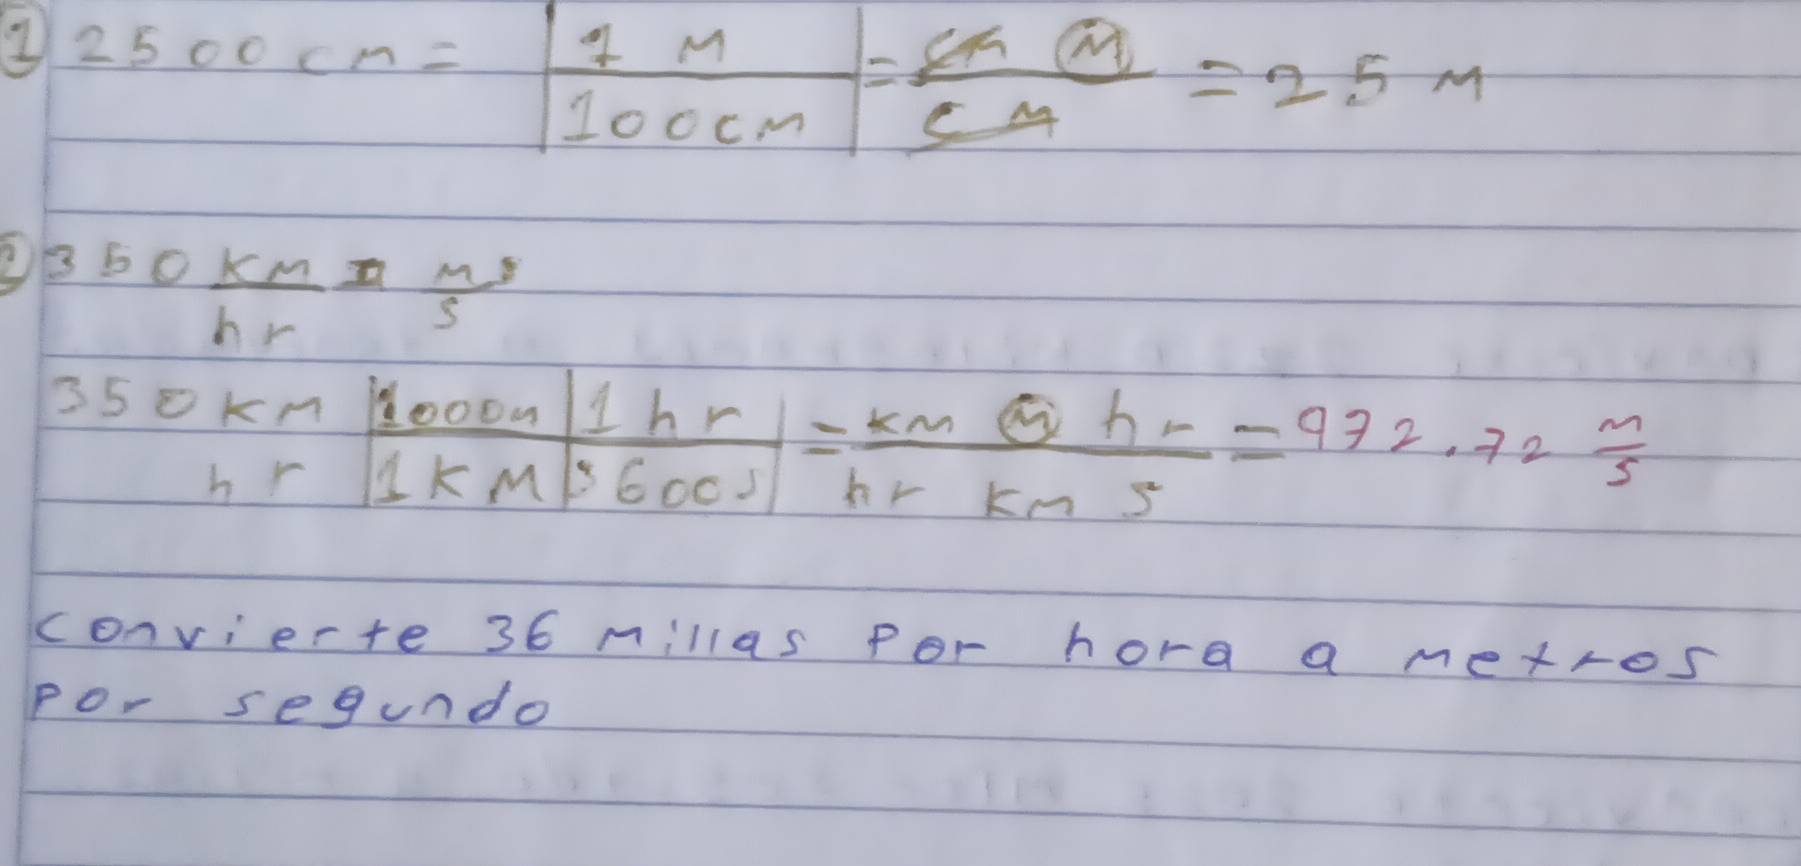 ① 2500 cm = | 1 M / 100 cm | = cm Ⓜ / cm = 25 M
② 350 KM/hr = M/s
350 KM/hr | 1000 M / 1 KM | 1 hr / 3600 s | = KM Ⓜ hr / hr KM s = 972.72 M/s
convierte 36 Millas Por hora a Metros
Por segundo